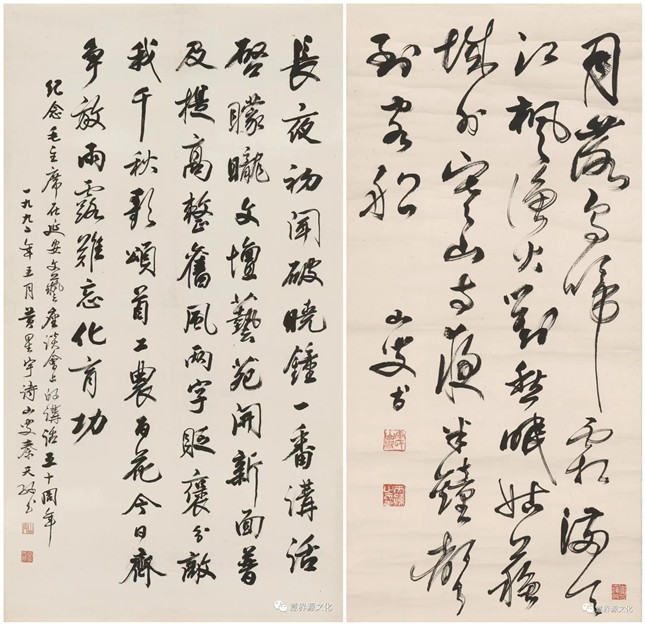 長夜初聞破曉鍾一番講話
啓矇矓文壇藝苑開新面普
及提高整舊風两字貶褒分敵
我千秋歌頌首工農百花今日齊
争放雨露難忘化育功
紀念毛主席在延安文藝座談會上的講話五十周年
一九九二年五月黄星宇诗山叟秦天书
月落烏啼霜滿天
江楓漁火對愁眠姑蘇
城外寒山寺夜半鐘聲
到客船
山叟书
源文化
源文化